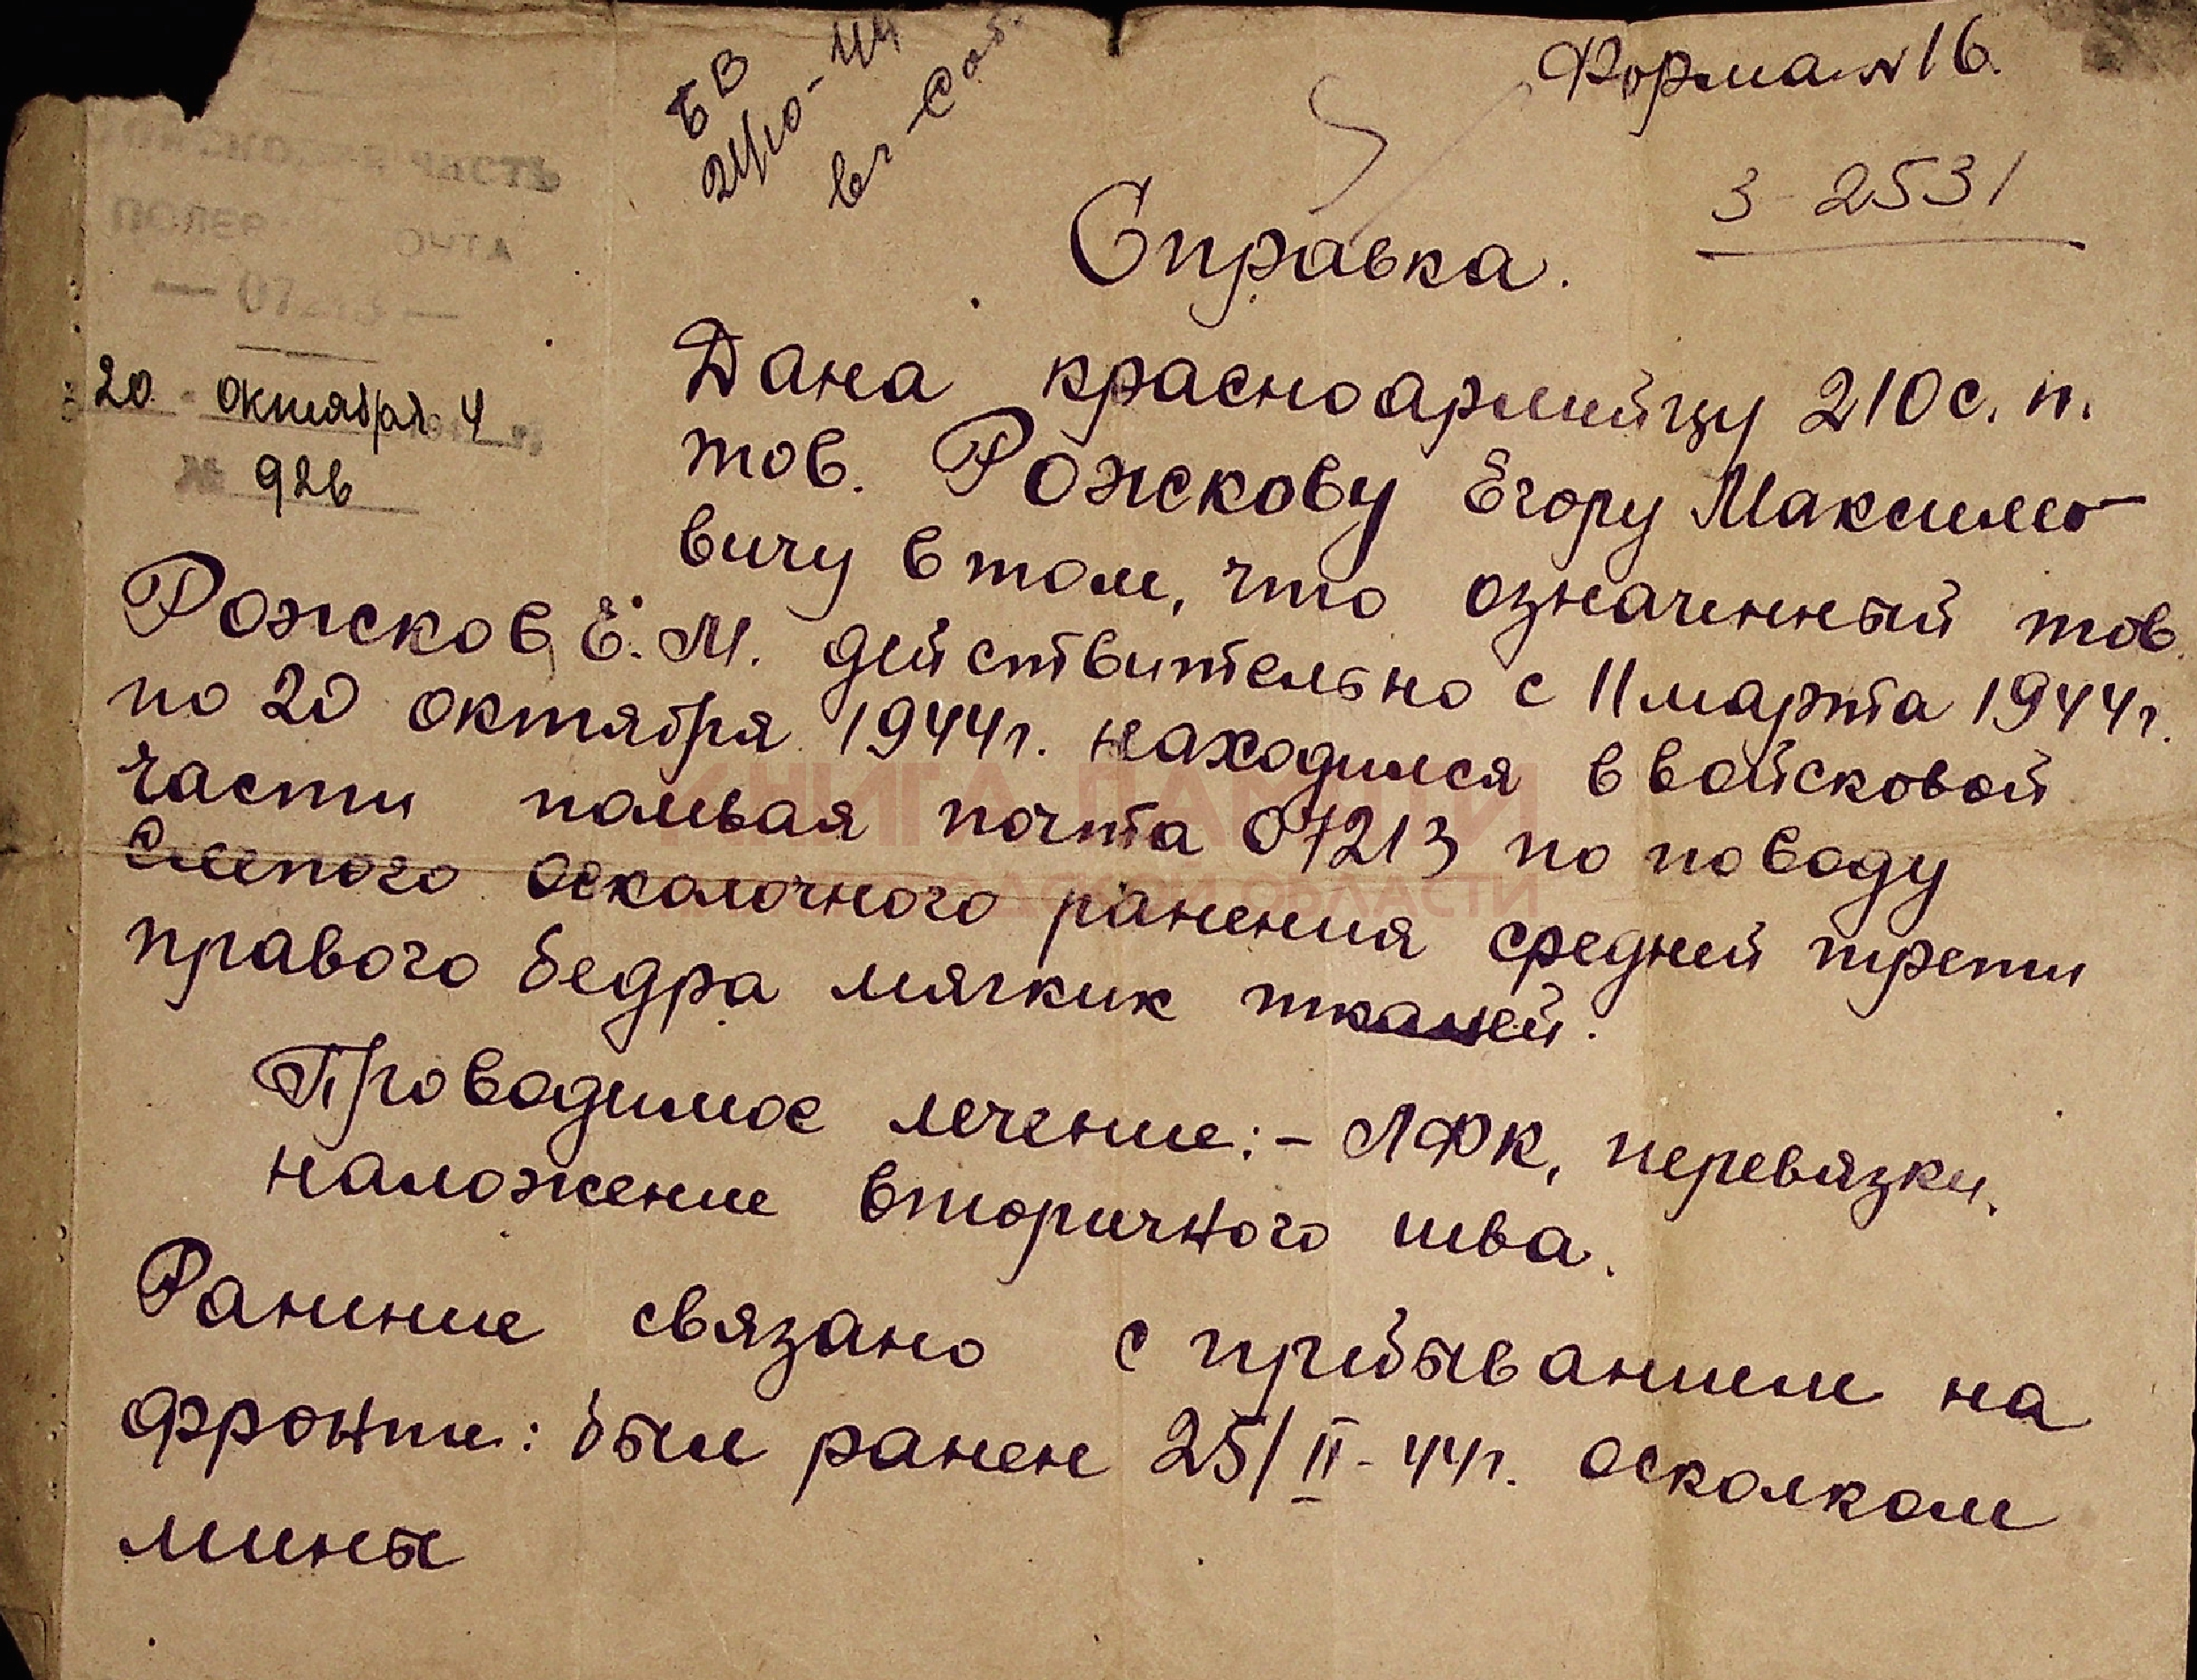 Форма № 16.
БВ
21/10-44
3-2531
ВОЙСКОВАЯ ЧАСТЬ
ПОЛЕВ ОЧТА
— 07213 —
20 октября 4
№ 926
Справка.
Дана красноармийцу 210 с. п.
тов. Рожскову Егору Максимо-
вичу в том, что означенный тов.
Рожсков Е. М. действительно с 11 марта 1944 г.
по 20 октября 1944 г. находился в войсковой
части полевая почта 07213 по поводу
слепого осколочного ранения средней трети
правого бедра мягких тканей.
Проводимое лечение: - ЛФК, перевязки,
наложение вторичного шва.
Ранение связано с пребыванием на
фронте: был ранен 25/II-44 г. осколком
мины
КНИГА ПАМЯТИ
ОБЛАСТИ